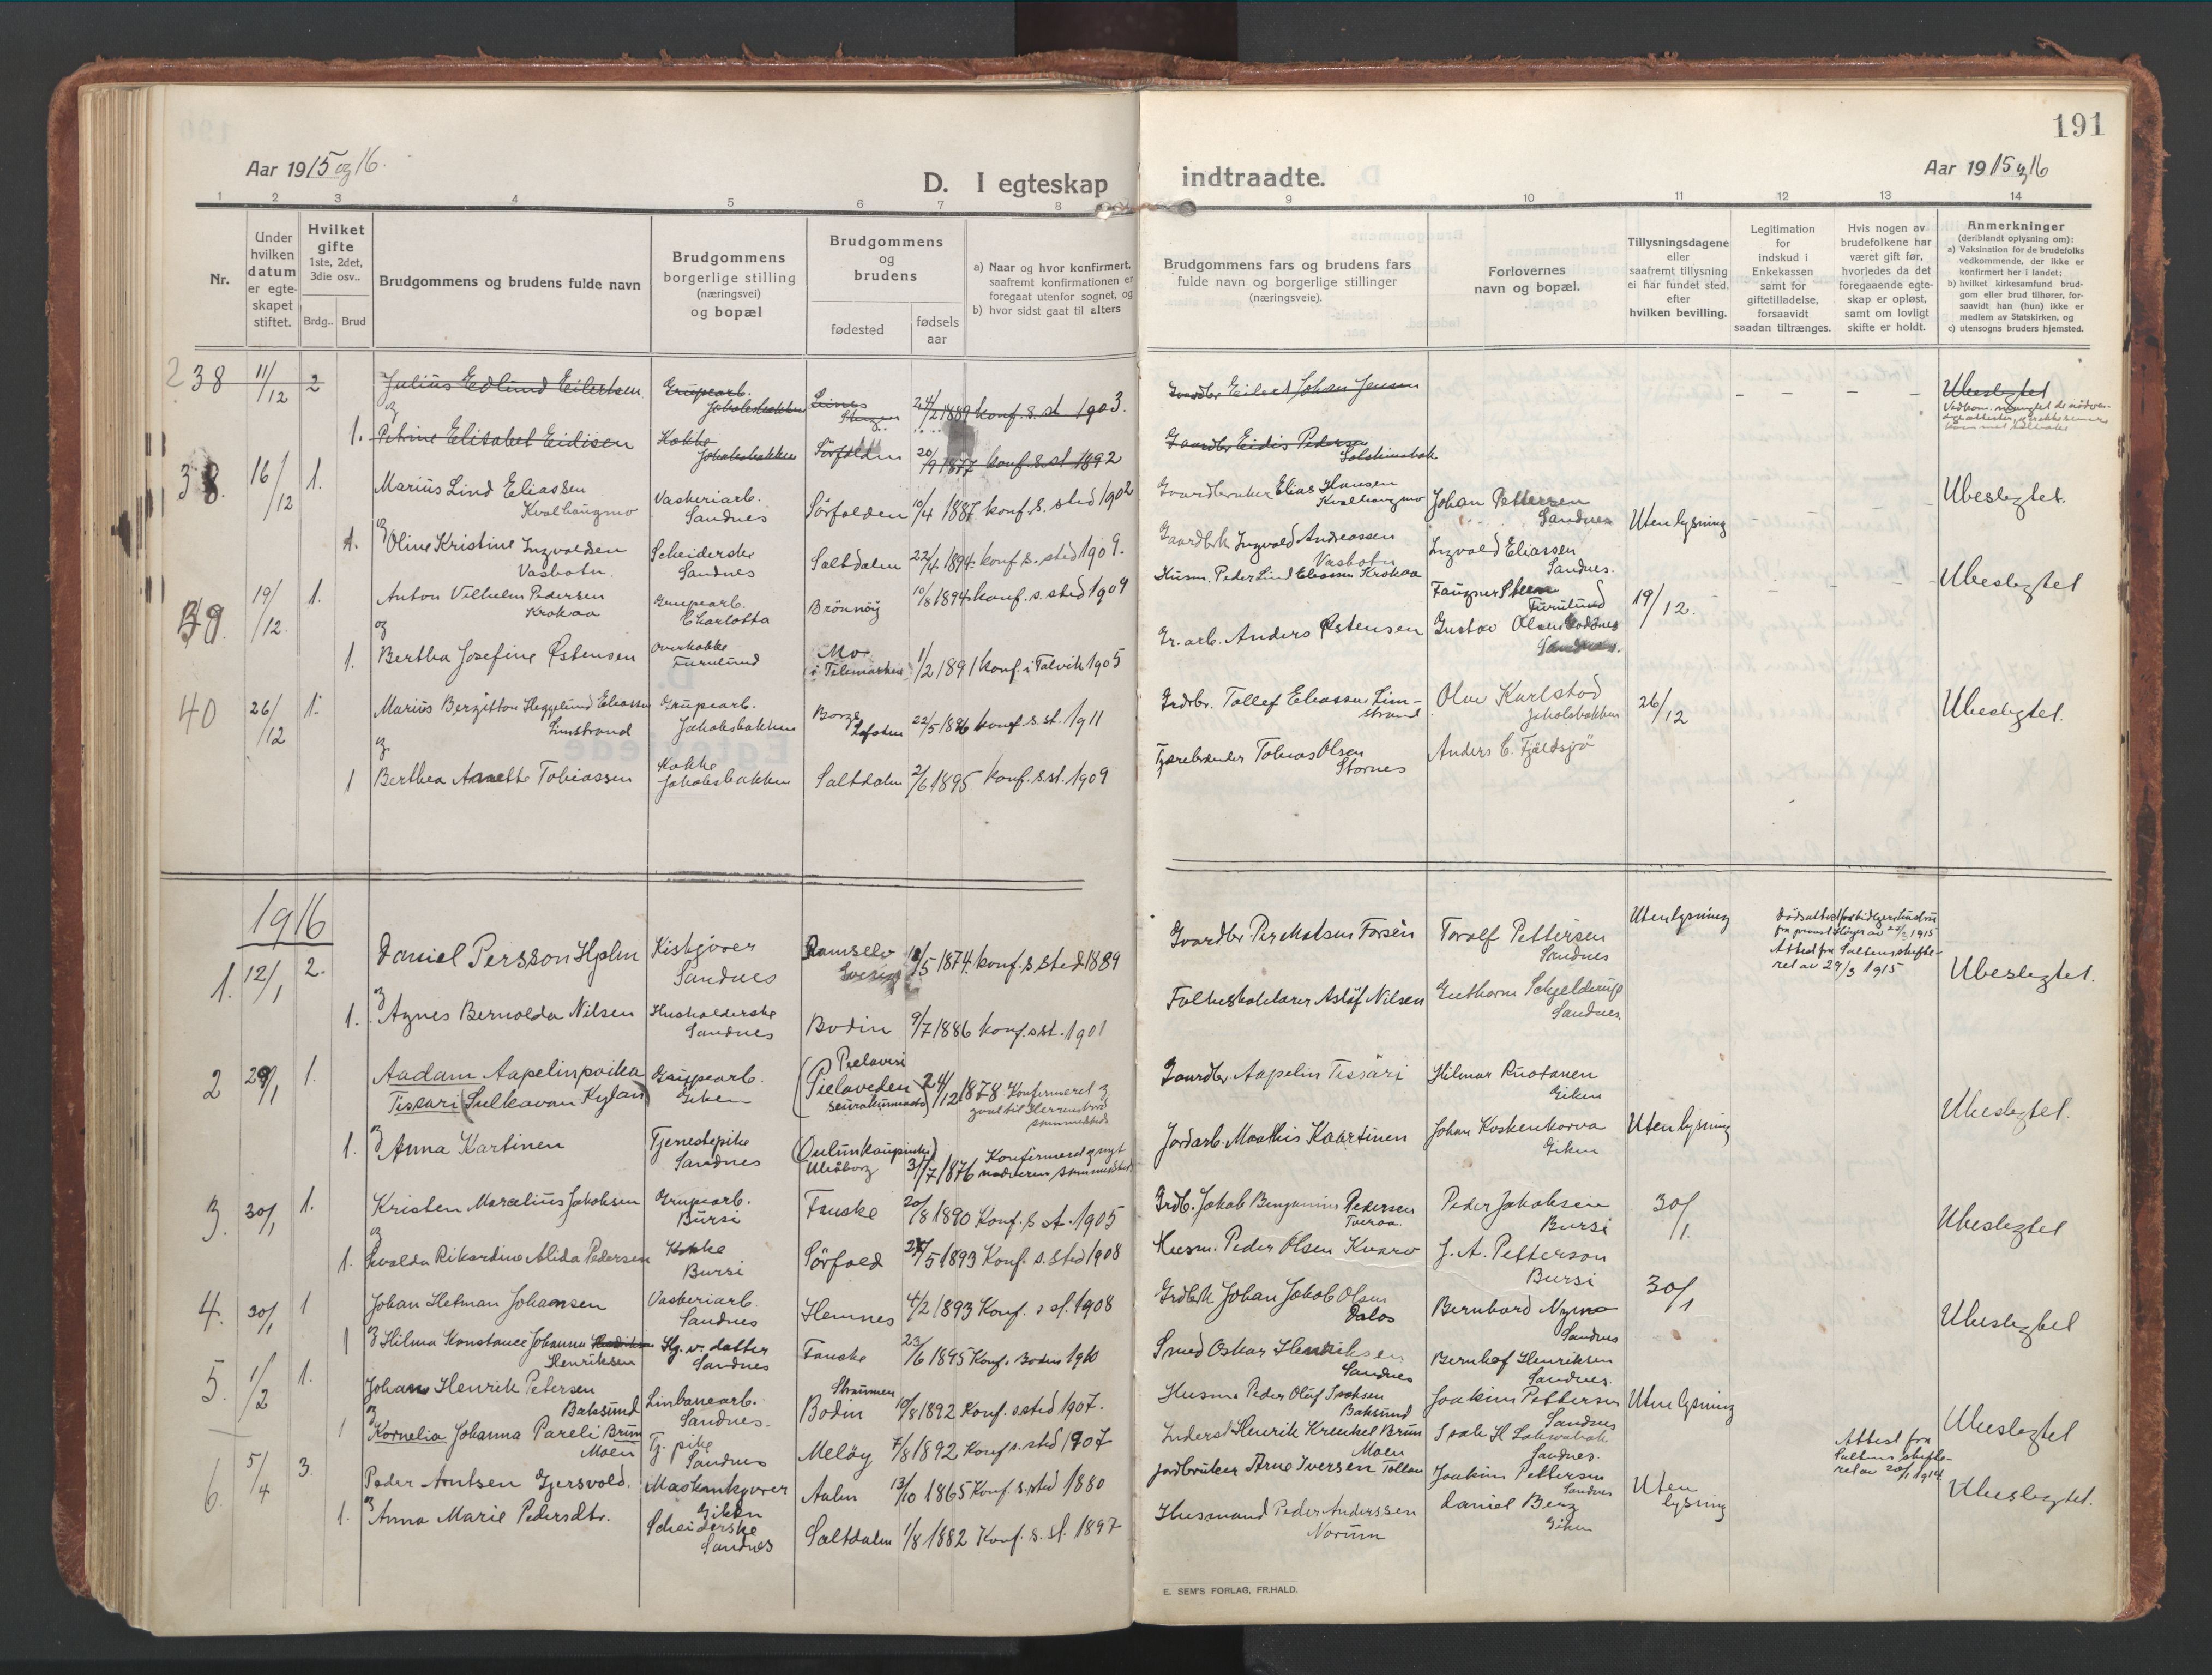 191
Aar 1915 og 16.
D. I egteskap
indtraadte.
Aar 1915 og 16
1 2 3 4 5 6 7 8 9 10 11 12 13 14
Nr.
Under hvilken datum er egteskapet stiftet.
Hvilket gifte 1ste, 2det, 3die osv..
Brdg.. Brud
Brudgommens og brudens fulde navn
Brudgommens borgerlige stilling (næringsvei) og bopæl
Brudgommens og brudens
fødested
fødsels aar
a) Naar og hvor konfirmert, saafremt konfirmationen er foregaat utenfor sognet, og
b) hvor sidst gaat til alters
Brudgommens fars og brudens fars fulde navn og borgerlige stillinger (næringsveie).
Forlovernes navn og bopæl.
Tillysningsdagene eller saafremt tillysning ei har fundet sted, efter hvilken bevilling.
Legitimation for indskud i Enkekassen samt for giftetilladelse, forsaavidt saadan tiltrænges.
Hvis nogen av brudefolkene har været gift før, hvorledes da det foregaaende egteskap er opløst, samt om lovligt skifte er holdt.
Anmerkninger
(deriblandt oplysning om):
a) Vaksination for de brudefolks vedkommende, der ikke er konfirmert her i landet;
b) hvilket kirkesamfund brudgom eller brud tilhører, forsaavidt han (hun) ikke er medlem av Statskirken, og
c) utensogns bruders hjemsted.
38 11/12 2 Julius Edlund Eilertsen Grupearb. Jakobsbakken Leines Steigen 24/2 1889 konf. s. st 1903. Gaardbr Eilert Johan Jensen Ubeslegtet
og
1. Petrine Elisabet Eidisen Kokke Jakobsbakken Sörfolden 20/9 1877 konf. s. st 1892 Gaardbr Eidis Pedersen
38. 16/12 1. Marius Lind Eliassen Kvalhaugmo Vaskeriarb. Sandnes Sörfolden 10/4 1887 konf. s. sted 1902 Gaardbruker Elias Hansen Kvalhaugmo Johan Pettersen Sandnes Uten lysning Ubeslegtet.
og
1. Oline Kristine Ingvaldsen Vasbotn. Scheiderske Sandnes Saltdalen 22/4 1894 konf s. sted 1909. Gaardbrk Ingvald Andreassen Vasbotn Ingvald Eliassen Sandnes.
39. 19/12. 1. Anton Vilhelm Pedersen Krokaa Grupearb. Charlotta Brönnöy 10/8 1894 konf. s. sted 1909 Husm. Peder Lind Eliassen Krokaa Faugner Steen Furulund 19/12. Ubeslegtet
og
1. Bertha Josefine Østensen Overkokke Furulund Mo i Telemarken 1/2 1891 konf. i Talvik 1905 Gr. arb. Anders Østensen Gustav Olsen
40 26/12 1. Marius Bergitton Heggelund Eliassen Limstrand Grupearb. Jakobsbakken Borge Lofoten 22/5 1886 konf. s. st. 1911 Grdbr. Tollef Eliassen Limstrand Olav Karlstad Jakobsbakken 26/12 Ubeslegtet.
og
1 Berthea Anette Tobiassen Kokke Jakobsbakken Saltdalen 2/6 1895 konf. s. st. 1909 Tjærebrænder Tobias Olsen Stornes Anders C. Fjeldsjö
1916
1. 12/1 2. Daniel Persson Hjelm Kiskjører Sandnes Ramsele Sverige /5 1874. konf. s sted 1889 Gaardbr Per Matsen Forsén Torolf Pettersen Sandnes Uten lysning Attest fra Saltens skifteret av 29/3 1915 Ubeslegtet.
og
1. Agnes Bernolda Nilsen Husholderske Sandnes Bodin 9/7 1886 konf. s st. 1901 Folkeskolelærer Asläf Nilsen Guthorm Schjelderup Sandnes.
2 29/1 1. Aadam Aapelinpoika Tissari (Sulkavan Kylan) Grupearb. Giken Pielavesi (Pielaveden seurakunnasta) 24/12 1878 Konfirmeret og gaat til Herrens bord sammesteds Gaardbr Aapelin Tissäri Hilmar Ruotanen Giken Uten lysning Ubeslegtet.
og
1. Anna Kartinen Tjenestepike Sandnes (Oulunkaupunki) Uleåborg 31/7 1876 Konfirmeret og nyt nadveren sammesteds Jordarb. Mathis Kaartinen Johan Koskenkorva Giken
3. 30/1 1. Kristen Marcelius Jakobsen Grupearb. Bursi Fauske 20/8 1890 Konf. s st. 1905 Grdb. Jakob Benjamins Pedersen Tveraa. Peder Jakobsen Bursi 30/1. Ubeslegtet
og
1. Evalda Rikardine Alida Pedersen Kokke Bursi Sörfold 27/5 1893 Konf. s. sted 1908 Husm. Peder Olsen Kvarv J. A. Petterson Bursi
4. 30/1 1 Johan Hetman Johansen Vaskeriarb. Sandnes Hemnes 4/2 1893 Konf. s st. 1908 Grdbrk Johan Jakob Olsen Dalos Bernhard Nymo Sandnes 30/1 Ubeslegtet
1 og Hilma Konstance Johanna Henriksen Hj. v. datter Sandnes Fauske 23/6 1895 Konf. i Bodin 1910 Smed Oskar Henriksen Sandnes Bernhof Henriksen Sandnes.
5. 1/2 1. Johan Henrik Petersen Baksund Linbanearb. Sandnes. Straumen Bodin 10/8 1892 Konf. s sted 1907. Husm. Peder Oluf Isaksen Baksund Joakim Pettersen Sandnes Uten lysning Ubeslegtet
og
1 Kornelia Johanna Pareli Brun Moen Tj. pike Sandnes Melöy 7/8 1892 Konf s. sted 1907 Inderst Henrik Krenkel Brun Moen Isak H Sandnes.
6. 5/4 3. Peder Arntsen Gjersvold. Maskinkjører Giken Aalen 13/10 1865 Konf. s. sted 1880 Jordbruker Arne Iversen Joakim Pettersen Sandnes Uten lysning Attest fra Saltens skifteret av 20/1 1914 Ubeslegtet.
og
1. Anna Marie Pedersdtr. Scheiderske Sandnes Saltdalen 1/8 1882 Konf. s. st. 1897 Husmand Peder Anderssen Norum Daniel Berg Giken
E. SEM'S FORLAG, FR.HALD.